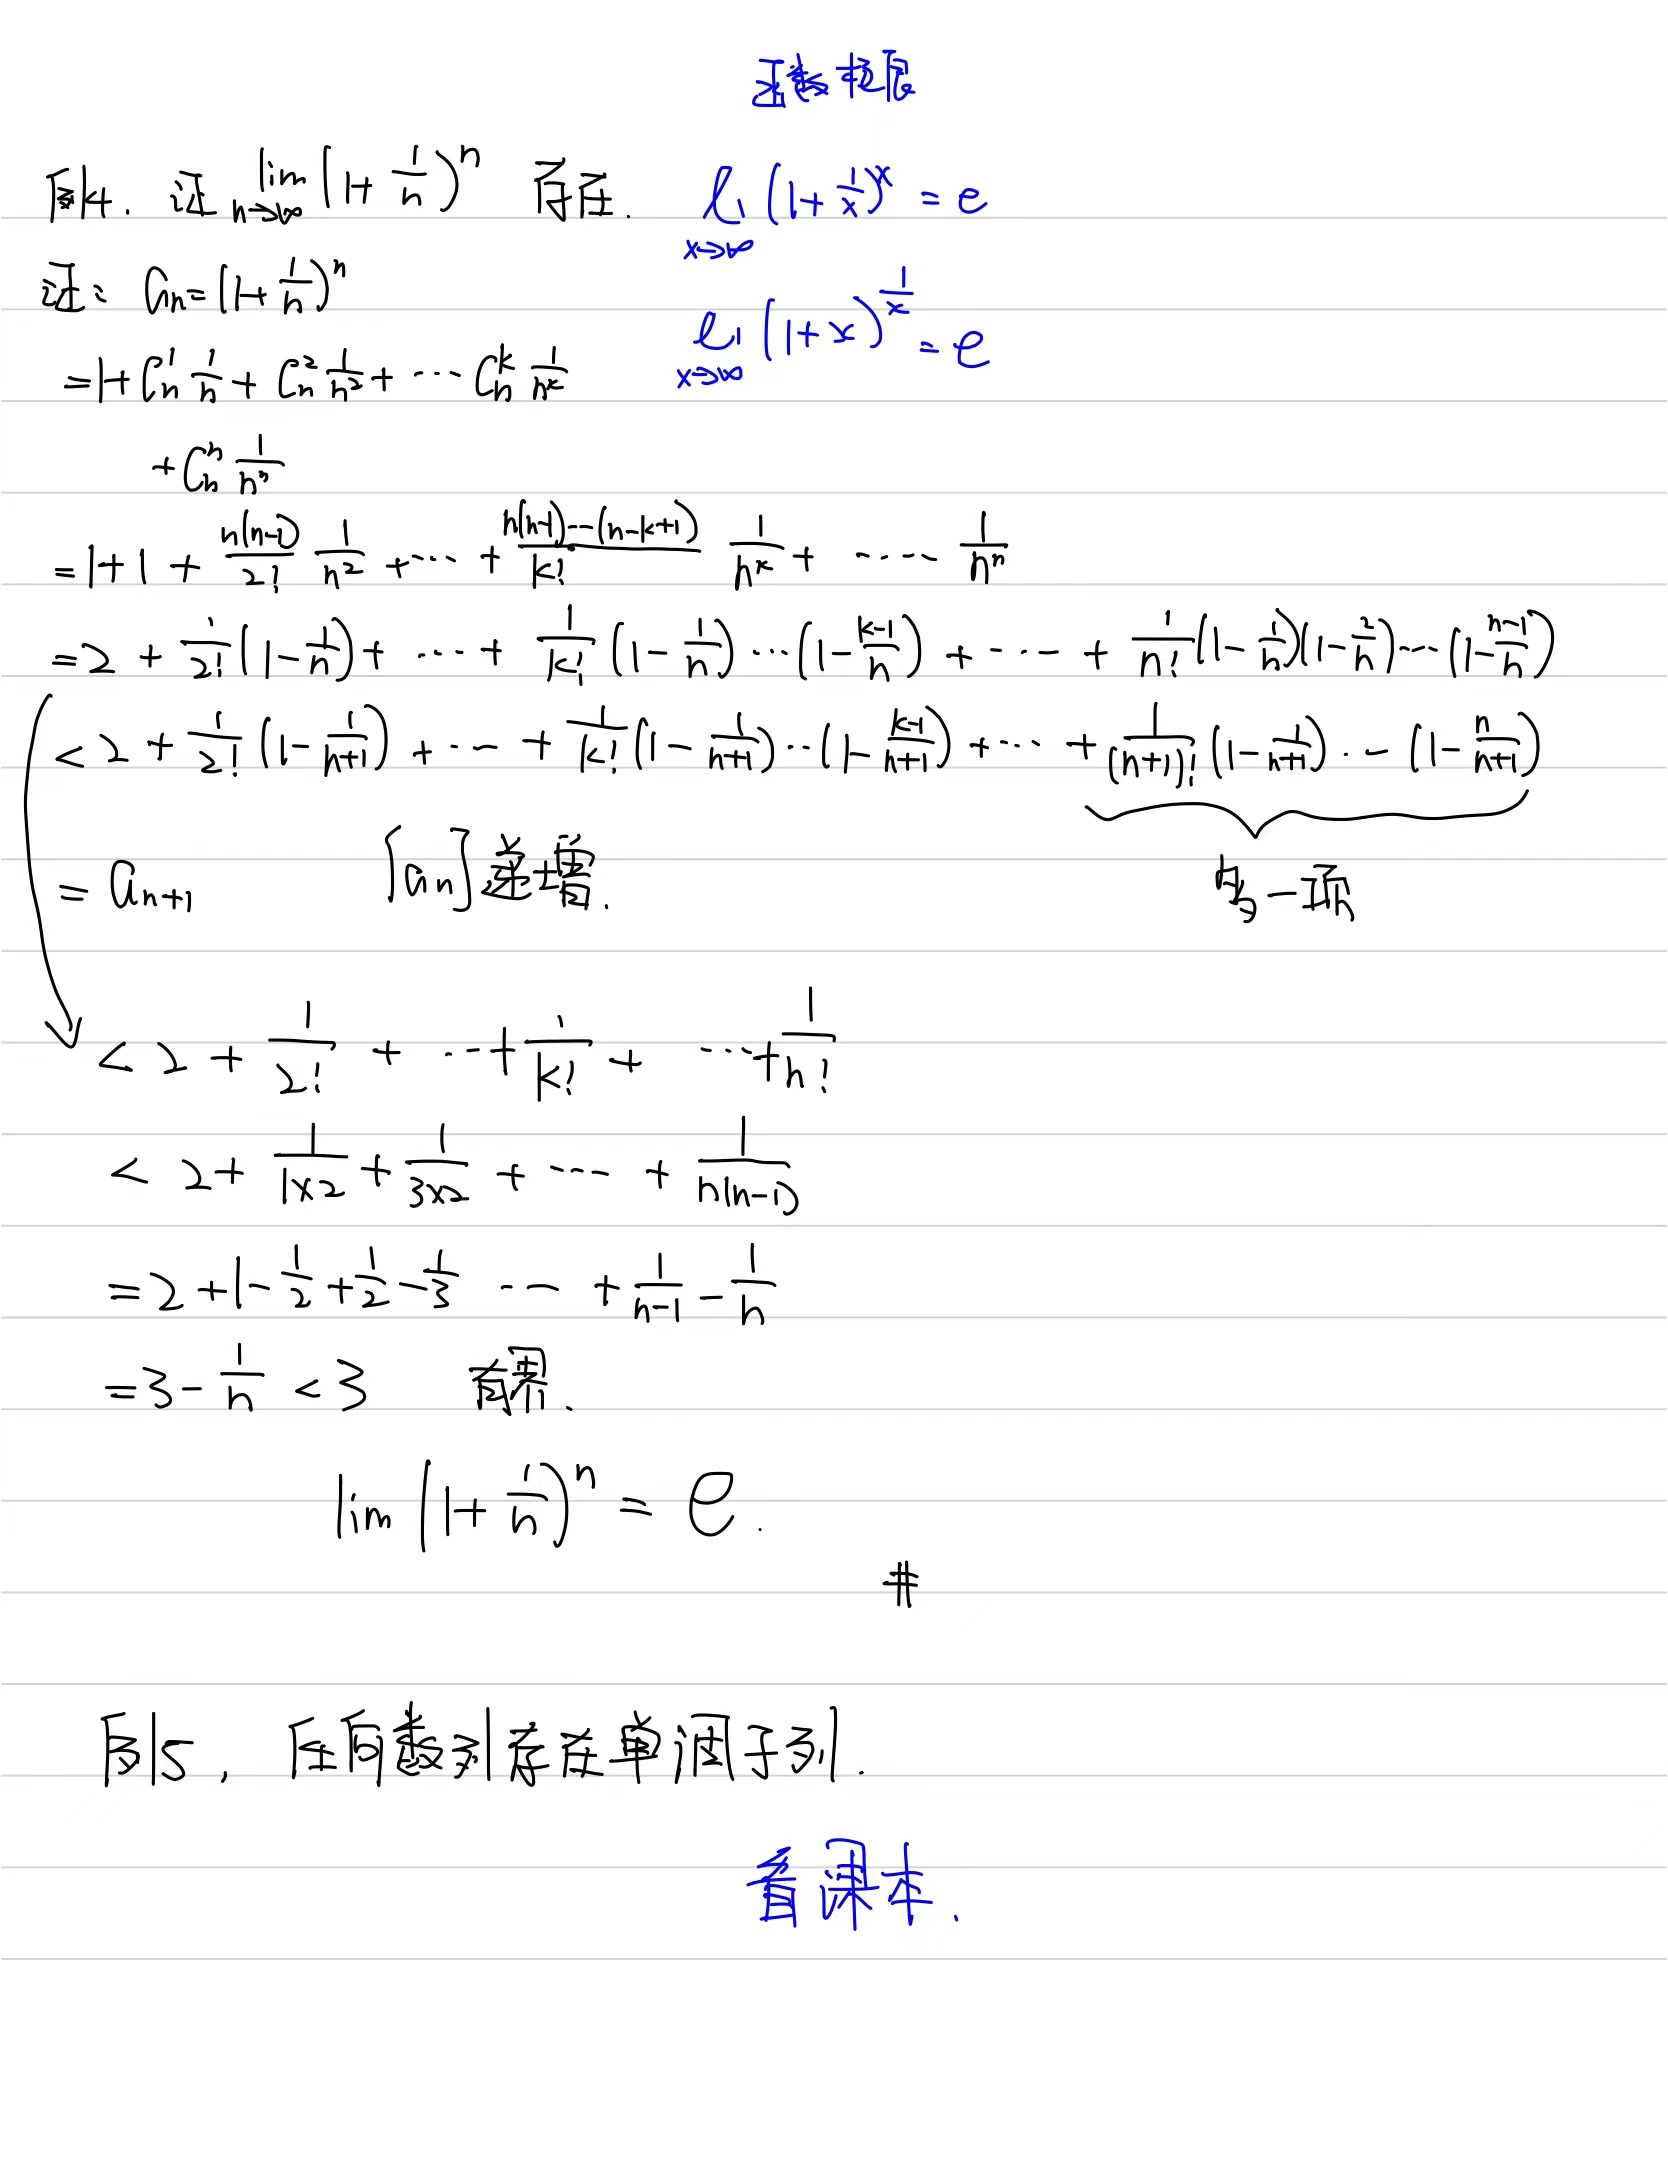 函数极限
例4. 证 lim n→∞ (1+1/n)^n 存在.
l, x→∞ (1+1/x)^x = e
证: a_n=(1+1/n)^n
l, x→∞ (1+x)^(1/x) = e
=1+C_n^1 1/n + C_n^2 1/n^2 + ··· C_n^k 1/n^k
+C_n^n 1/n^n
=1+1+ n(n-1)/2! 1/n^2 +··· + n(n-1)···(n-k+1)/k! 1/n^k + ···· 1/n^n
=2 + 1/2! (1-1/n) + ··· + 1/k! (1-1/n)···(1-(k-1)/n) + ··· + 1/n! (1-1/n)(1-2/n)···(1-(n-1)/n)
< 2 + 1/2! (1-1/(n+1)) + ··· + 1/k! (1-1/(n+1))··(1-(k-1)/(n+1)) +··· + 1/(n+1)! (1-1/(n+1))···(1-n/(n+1))
= a_{n+1} [a_n]递增.
多一项
< 2 + 1/2! + ···+ 1/k! + ···+ 1/n!
< 2+ 1/(1×2) + 1/(3×2) + ··· + 1/(n(n-1))
=2+1-1/2+1/2-1/3 ··· + 1/(n-1) - 1/n
=3-1/n <3 有界.
lim (1+1/n)^n = e.
#
例5, 任何数列存在单调子列.
看课本.